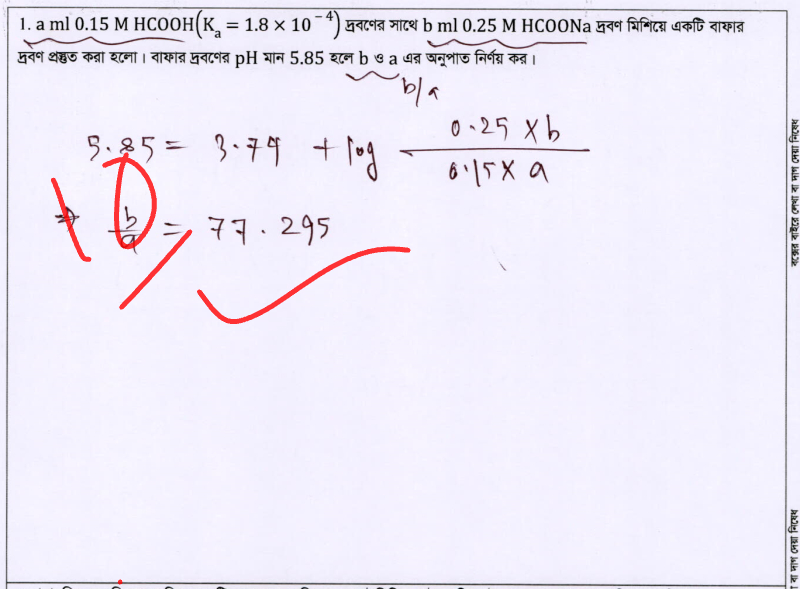 1. a ml 0.15 M HCOOH(Kₐ = 1.8 × 10⁻⁴) দ্রবণের সাথে b ml 0.25 M HCOONa দ্রবণ মিশিয়ে একটি বাফার
দ্রবণ প্রস্তুত করা হলো। বাফার দ্রবণের pH মান 5.85 হলে b ও a এর অনুপাত নির্ণয় কর।
b/a
5.85 = 3.74 + log (0.25 × b)/(0.15 × a)
⇒ b/a = 77.295
10
বক্সের বাইরে লেখা বা দাগ দেয়া নিষেধ
বা দাগ দেয়া নিষেধ